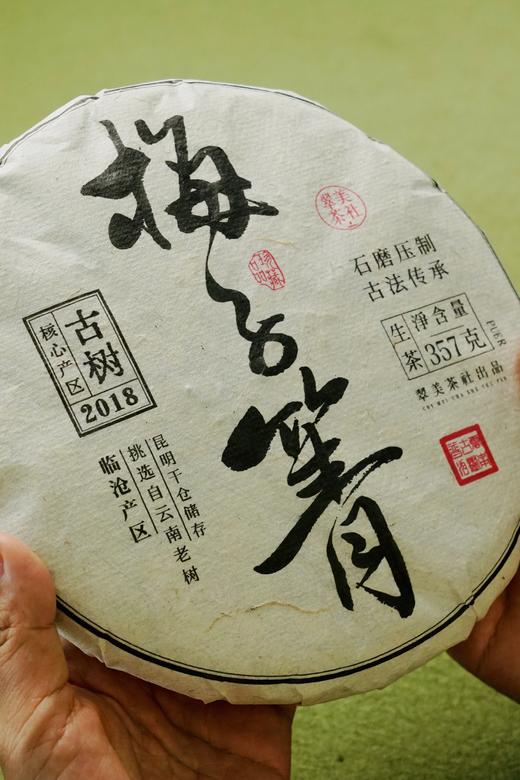 梅子箐
翠美茶社
珍藏品
石磨压制
古法传承
生茶
净含量
357克
PUER
翠美茶社出品
CUI MEI CHA SHE CHU PIN
古树
核心产区
2018
昆明干仓储存
挑选自云南老树
临沧产区